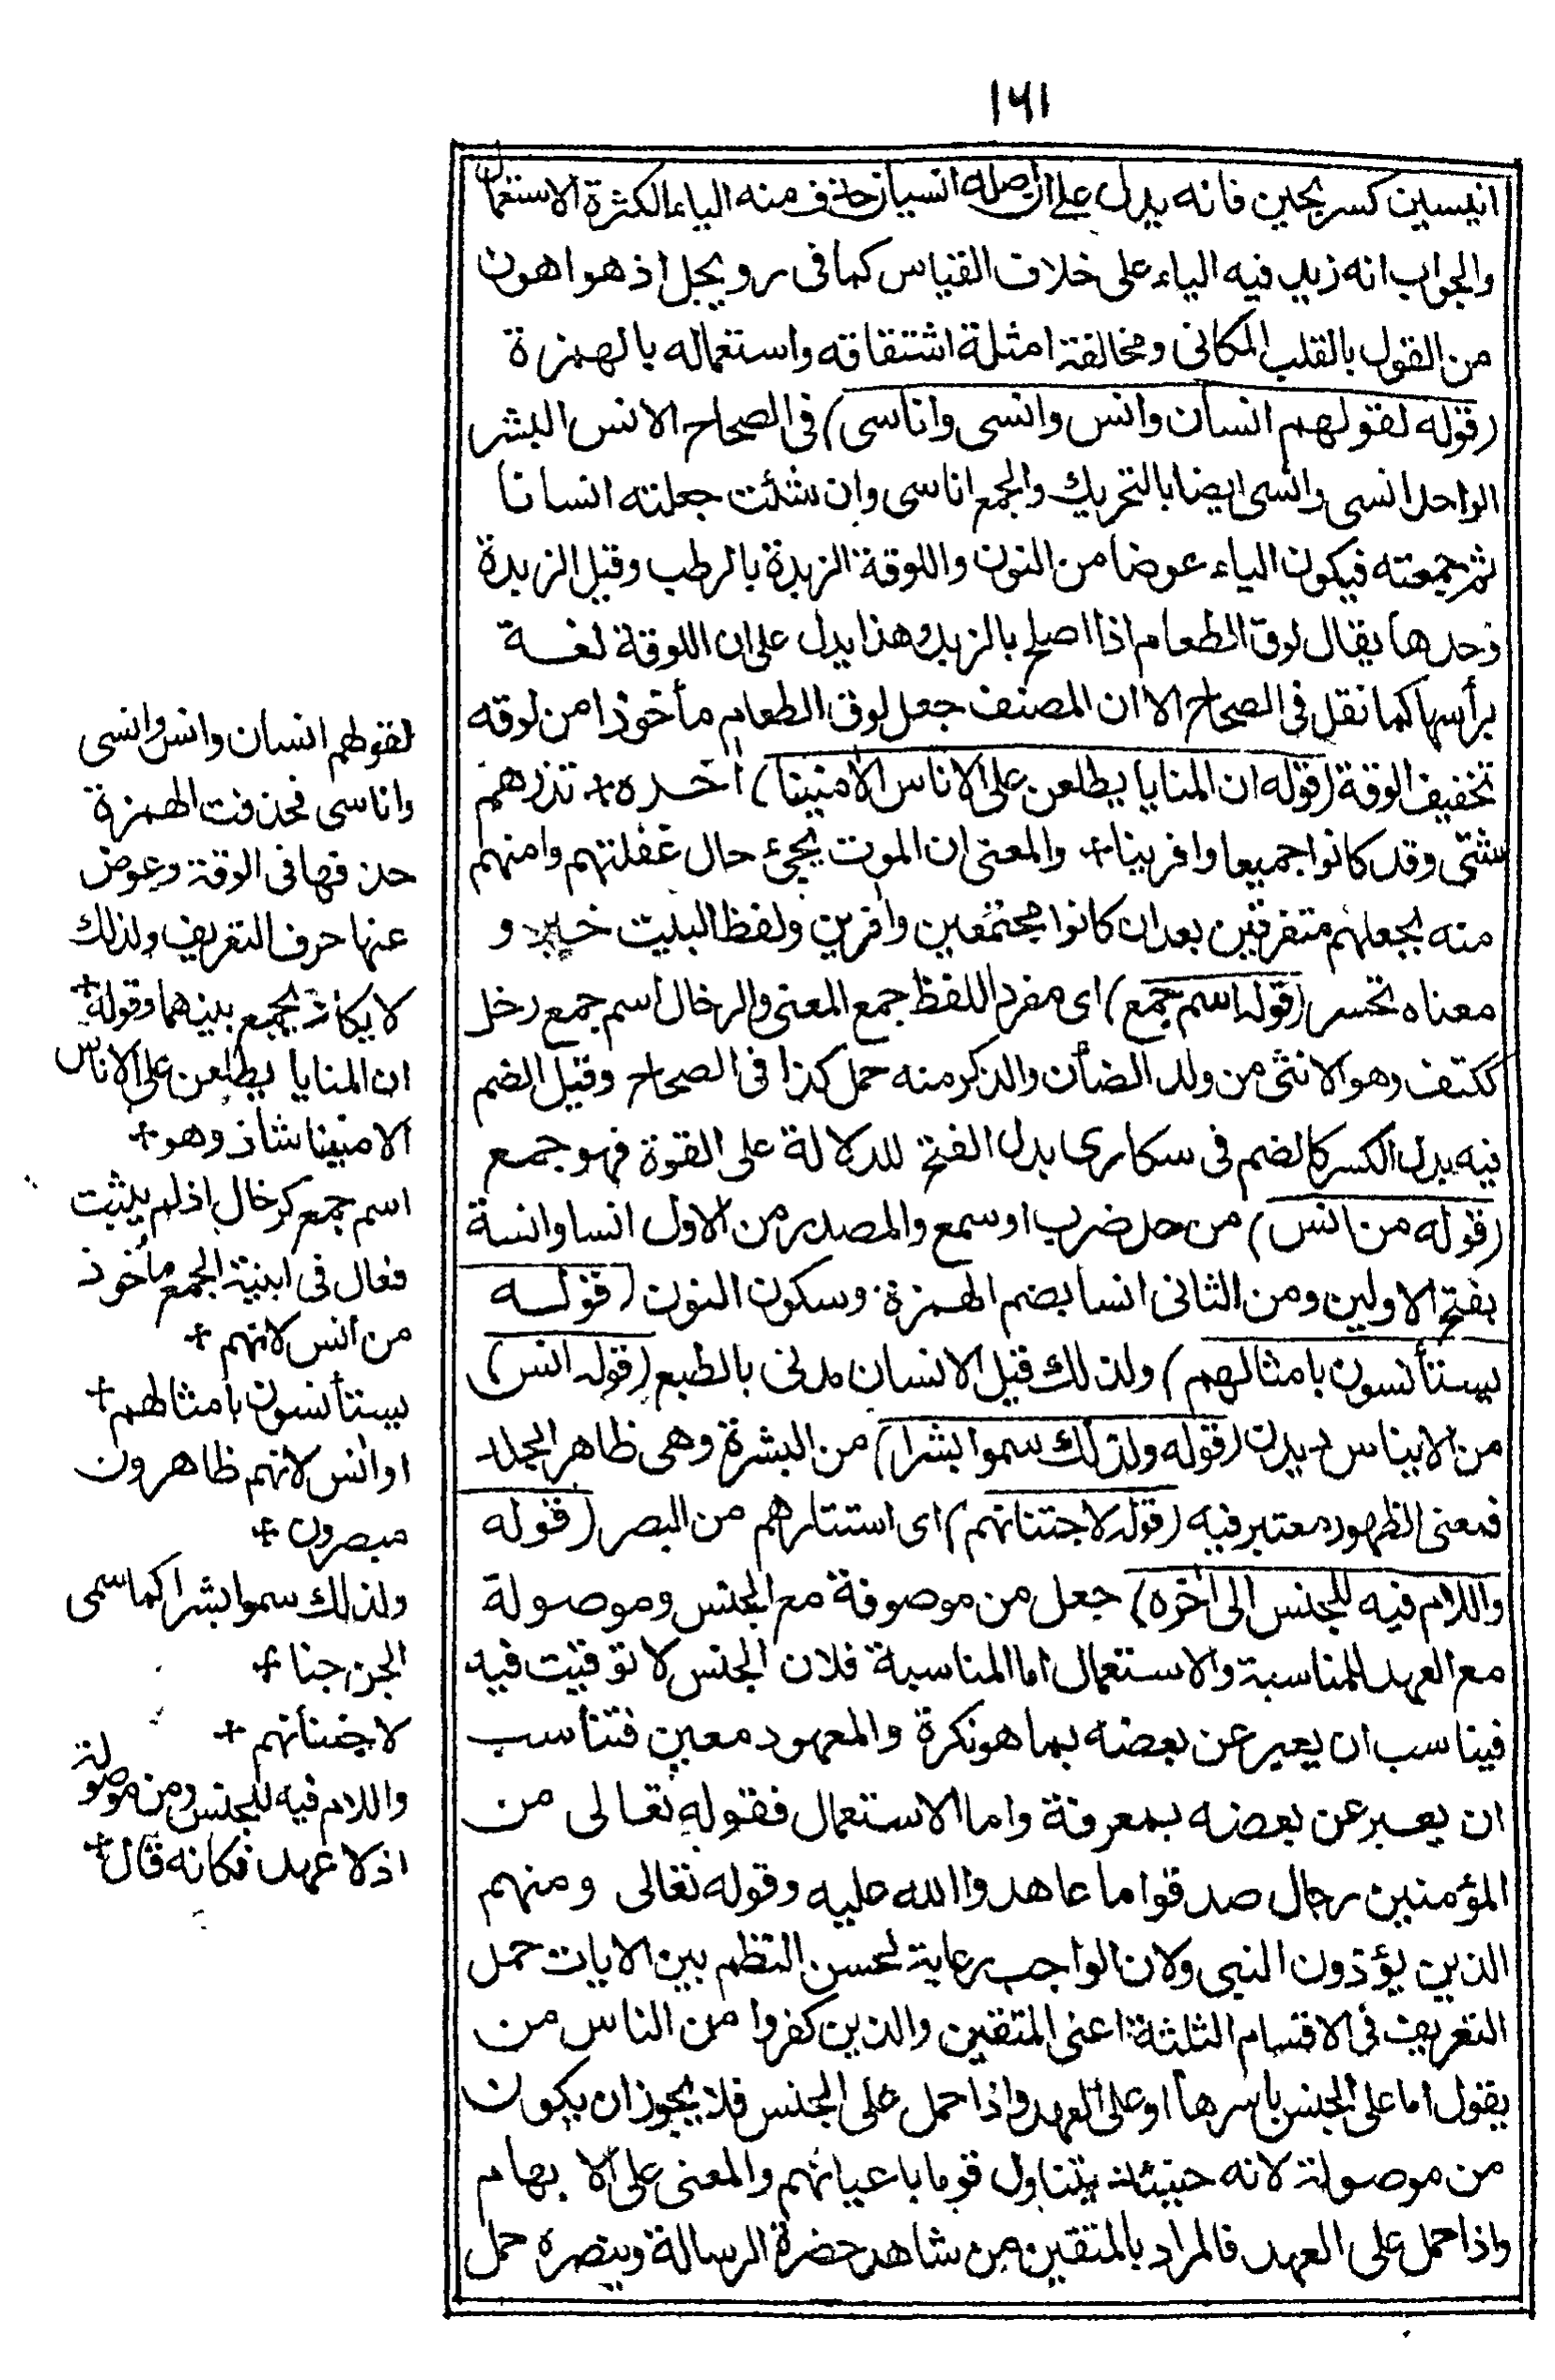 ١٦١
انيسين كسريحين فانه يدل على ان اصله انسيان حذف منه الياء لكثرة الاستعمال
والجواب انه زيد فيه الياء على خلاف القياس كما فى رويجل اذ هو اهون
من القول بالقلب المكانى ومخالفة امثلة اشتقاقه واستعماله بالهمزة
(قوله لقولهم انسان وانس وانسى واناسى) فى الصحاح الانس البشر
الواحد انسى وانسى ايضا بالتحريك والجمع اناسى وان شئت جعلته انسانا
ثم جمعته فيكون الياء عوضا من النون واللوقة الزبدة بالرطب وقيل الزبدة
وحدها يقال لوق الطعام اذا اصلح بالزبد وهذا يدل على ان اللوقة لغة
برأسها كما نقل فى الصحاح الا ان المصنف جعل لوق الطعام مأخوذا من لوقه
تخفيف الوقة (قوله ان المنايا يطلعن على الاناس الآمنينا) آخره + تذرهم
شتى وقد كانوا جميعا وافرينا + والمعنى ان الموت يجئ حال غفلتهم وامنهم
منه يجعلهم متفرقين بعد ان كانوا مجتمعين وافرين ولفظ البيت خبر و
معناه تحسر (قوله اسم جمع) اى مفرد اللفظ جمع المعنى والرخال اسم جمع رخل
ككتف وهو الانثى من ولد الضأن والذكر منه حمل كذا فى الصحاح وقيل الضم
فيه بدل الكسر كالضم فى سكارى بدل الفتح للدلالة على القوة فهو جمع
(قوله من انس) من حد ضرب او سمع والمصدر من الاول انسا وانسة
بفتح الاولين ومن الثانى انسا بضم الهمزة وسكون النون (قوله
يستأنسون بامثالهم) ولذلك قيل الانسان مدنى بالطبع (قوله انس)
من الايناس ديدن (قوله ولذلك سموا بشرا) من البشرة وهى ظاهر الجلد
فمعنى الظهور معتبر فيه (قوله لاجتنانهم) اى استتارهم من البصر (قوله
واللام فيه للجنس الى آخره) جعل من موصوفة مع الجنس وموصولة
مع العهد للمناسبة والاستعمال اما المناسبة فلان الجنس لا توقيت فيه
فيناسب ان يعبر عن بعضه بما هو نكرة والمعهود معين فتناسب
ان يعبر عن بعضه بمعرفة واما الاستعمال فقوله تعالى من
المؤمنين رجال صدقوا ما عاهدوا الله عليه وقوله تعالى ومنهم
الذين يؤذون النبى ولان الواجب رعاية لحسن النظم بين الايات حمل
التعريف فى الاقسام الثلثة اعنى المتقين والذين كفروا من الناس من
يقول اما على الجنس باسرها او على العهد واذا حمل على الجنس فلا يجوز ان يكون
من موصولة لانه حينئذ يتناول قوما باعيانهم والمعنى على الابهام
واذا حمل على العهد فالمراد بالمتقين من شاهد حضرة الرسالة وينصره حمل
لقولهم انسان وانس وانسى
واناسى فحذفت الهمزة
حذفها فى الوقة وعوض
عنها حرف التعريف ولذلك
لا يكاد يجمع بينهما وقوله +
ان المنايا يطلعن على الاناس
الآمنينا شاذ وهو +
اسم جمع كرخال اذ لم يثبت
فعال فى ابنية الجمع مأخوذ
من أنس لانهم +
يستأنسون بامثالهم +
او انس لانهم ظاهرون
مبصرون +
ولذلك سموا بشرا كما سمى
الجن جنا +
لاجتنانهم +
واللام فيه للجنس ومن موصولة
اذ لا عهد فكانه قال +